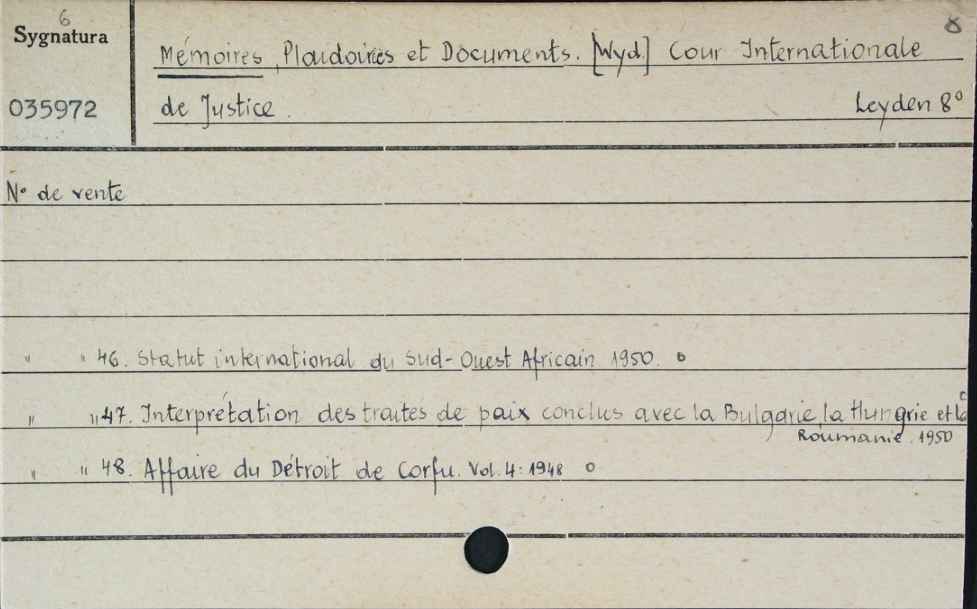 6
8
Sygnatura
Mémoires, Plaidoiries et Documents. [Wyd] Cour Internationale
035972
de Justice.
Leyden 8°
N° de vente
" " 46. Statut international du Sud-Ouest Africain 1950. o
" " 47. Interprétation des traites de paix conclus avec la Bulgarie, la Hungrie et la
Roumanie. 1950
" " 48. Affaire du Détroit de Corfu. Vol. 4: 1948 o